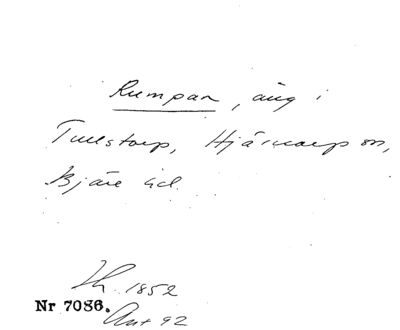 Rumpan, äng i
Tullstorp, Hjärnarp sn,
Bjäre hd.
Lh. 1852
Nr 7086.
Ant 92